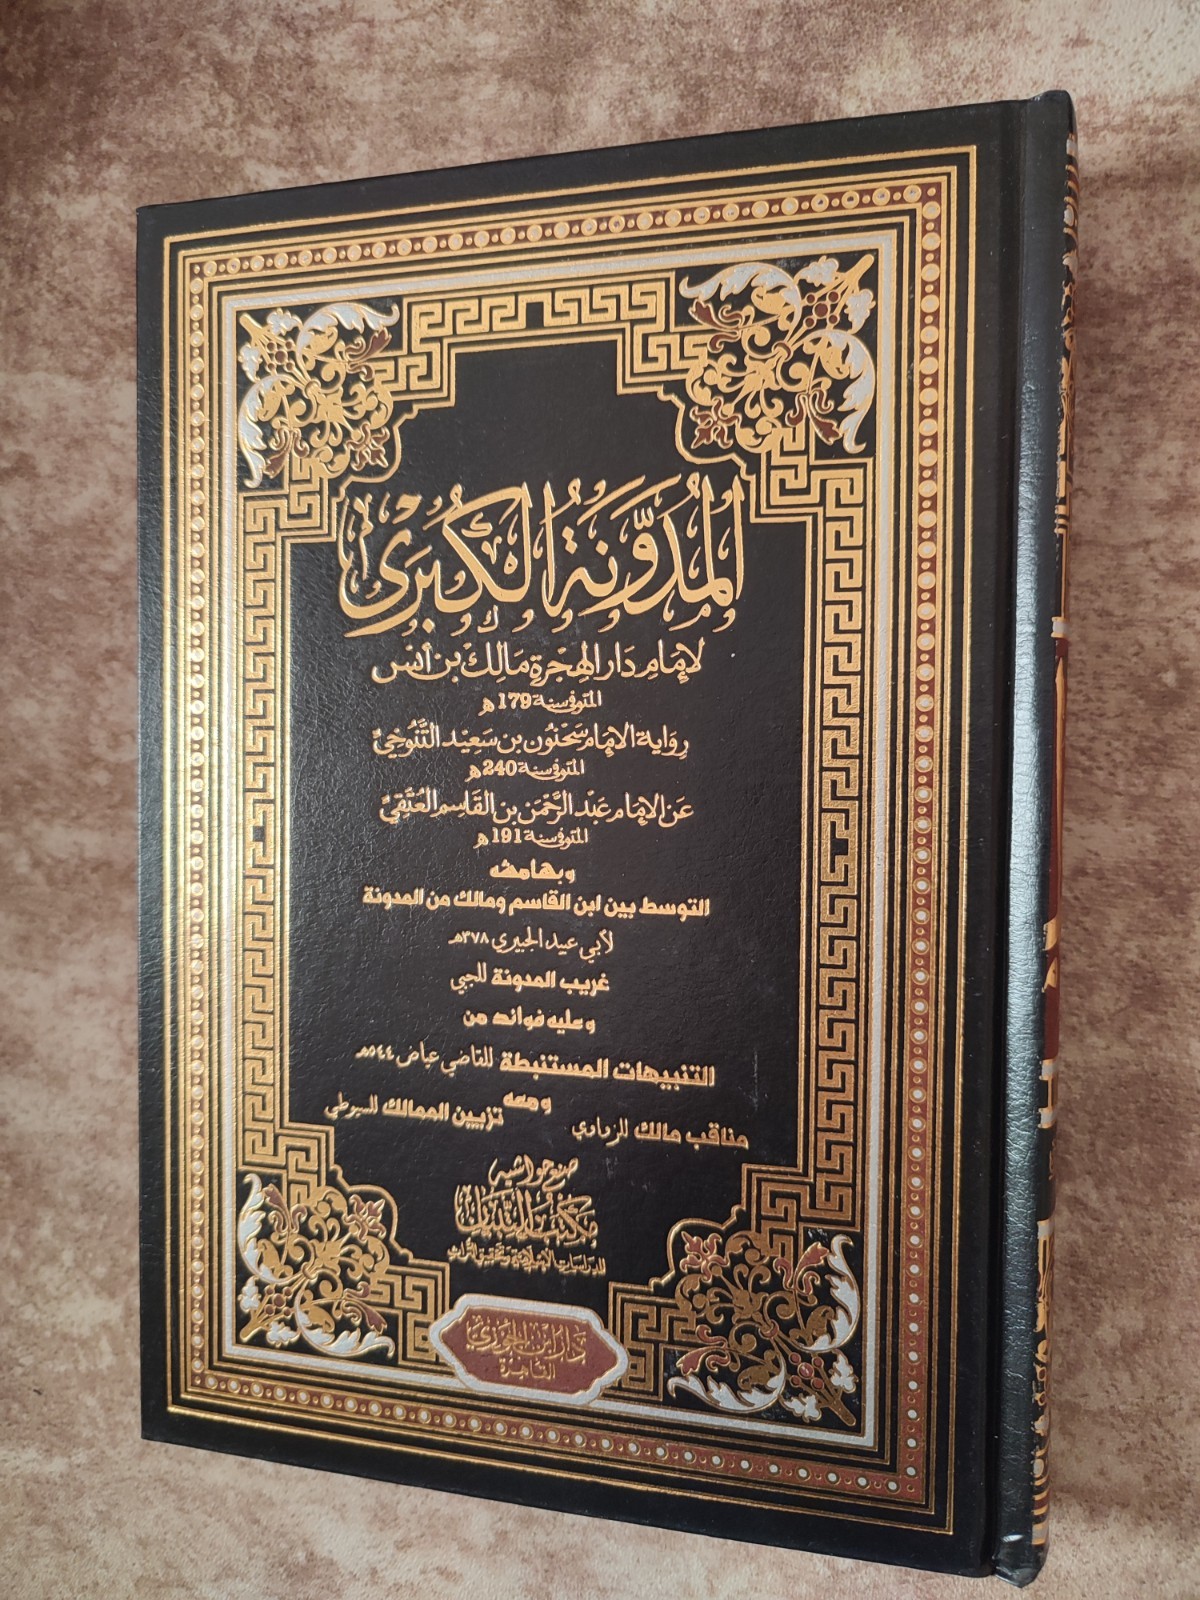 المُدَوَّنَةُ الكُبْرَى
لإِمَام دَار الهِجْرَة مَالِك بن أنَس
المتوفى سنة 179 هـ
رِوَاية الإمَام سَحْنُون بن سَعِيْد التَّنُوخِيّ
المتوفى سنة 240 هـ
عَن الإمَام عَبْد الرَّحْمَن بن القَاسِم العُتَقِيّ
المتوفى سنة 191 هـ
وبهامشه
التوسط بين ابن القاسم ومالك من المدونة
لأبي عبيد الجبيري ٣٧٨هـ
غريب المدونة للجبي
وعليه فوائد من
التنبيهات المستنبطة للقاضي عياض ٥٤٤هـ
ومعه
مناقب مالك للزواوي تزيين الممالك للسيوطي
صنع حواشيه
مكتب التبيان
للدراسات الإسلامية وتحقيق التراث
دار ابن الجوزي
القاهرة